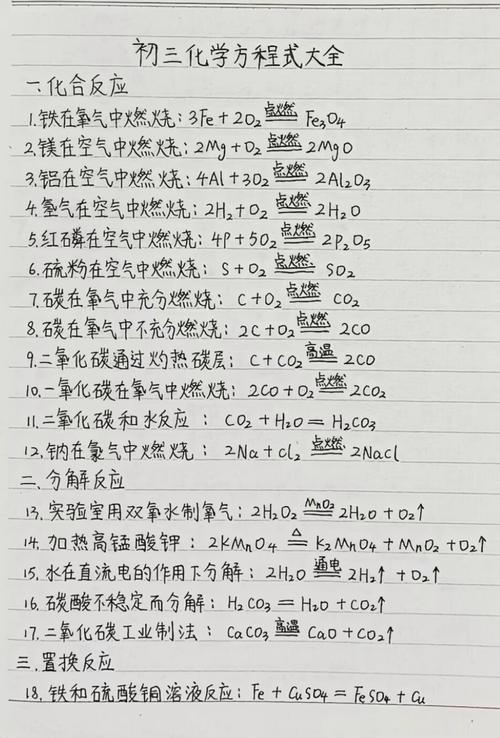 初三化学方程式大全
一.化合反应
1.铁在氧气中燃烧: 3Fe + 2O₂ 点燃 Fe₃O₄
2.镁在空气中燃烧: 2Mg + O₂ 点燃 2MgO
3.铝在空气中燃烧: 4Al + 3O₂ 点燃 2Al₂O₃
4.氢气在空气中燃烧: 2H₂ + O₂ 点燃 2H₂O
5.红磷在空气中燃烧: 4P + 5O₂ 点燃 2P₂O₅
6.硫粉在空气中燃烧: S + O₂ 点燃 SO₂
7.碳在氧气中充分燃烧: C + O₂ 点燃 CO₂
8.碳在氧气中不充分燃烧: 2C + O₂ 点燃 2CO
9.二氧化碳通过灼热碳层: C + CO₂ 高温 2CO
10.一氧化碳在氧气中燃烧: 2CO + O₂ 点燃 2CO₂
11.二氧化碳和水反应: CO₂ + H₂O = H₂CO₃
12.钠在氯气中燃烧: 2Na + Cl₂ 点燃 2NaCl
二.分解反应
13.实验室用双氧水制氧气: 2H₂O₂ MnO₂ 2H₂O + O₂↑
14.加热高锰酸钾: 2KMnO₄ △ K₂MnO₄ + MnO₂ + O₂↑
15.水在直流电的作用下分解: 2H₂O 通电 2H₂↑ + O₂↑
16.碳酸不稳定而分解: H₂CO₃ = H₂O + CO₂↑
17.二氧化碳工业制法: CaCO₃ 高温 CaO + CO₂↑
三.置换反应
18.铁和硫酸铜溶液反应: Fe + CuSO₄ = FeSO₄ + Cu